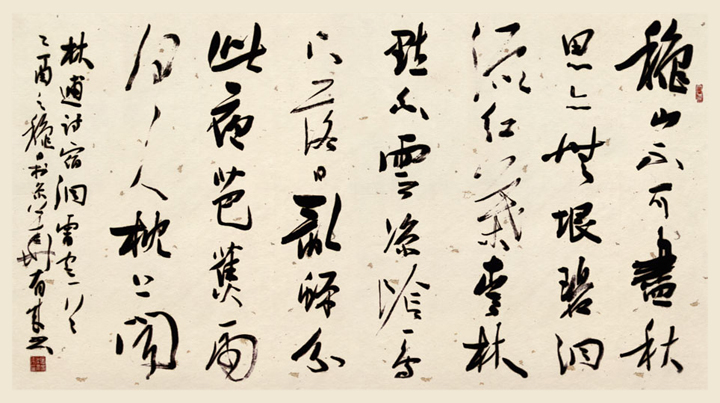 穐山不可盡秋
思亦無垠碧澗
流紅葉青林
點白雲涼陰一鳥
下落日亂蟬分
此夜芭蕉雨
何人枕上聞
林逋詩宿洞霄宮一首
乙酉之穐於京